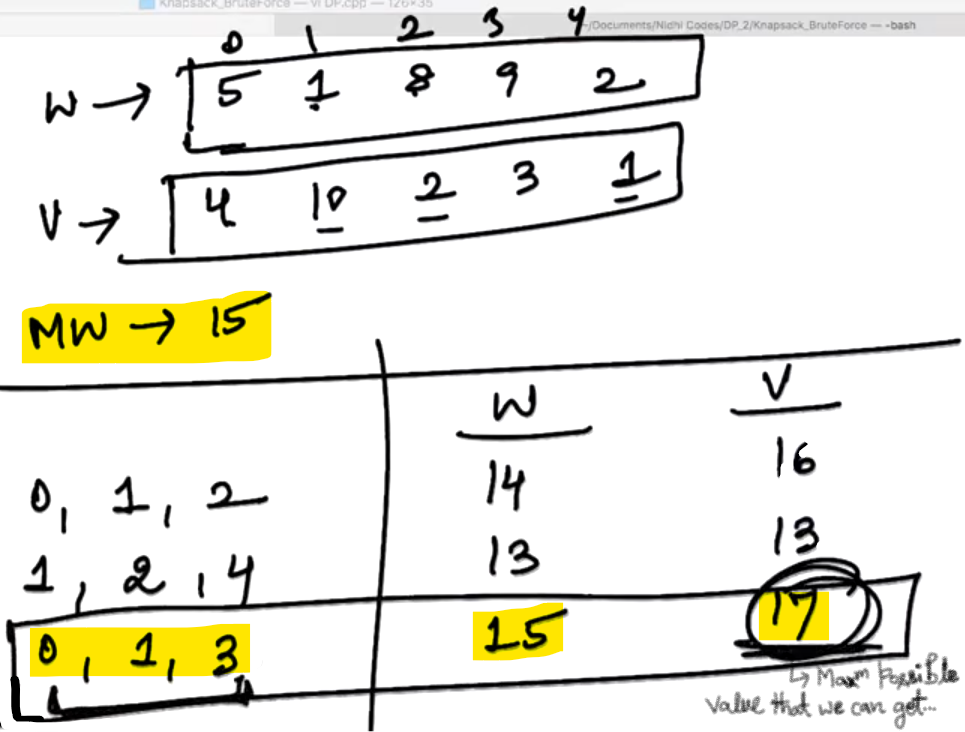 Knapsack_BruteForce — vi DP.cpp — 126×35
~/Documents/Nidhi Codes/DP_2/Knapsack_BruteForce — -bash
0 1 2 3 4
W → 5 1 8 9 2
V → 4 10 2 3 1
MW → 15
W V
0, 1, 2 14 16
1, 2, 4 13 13
0, 1, 3 15 17
↳ Maxm Possible
value that we can get...